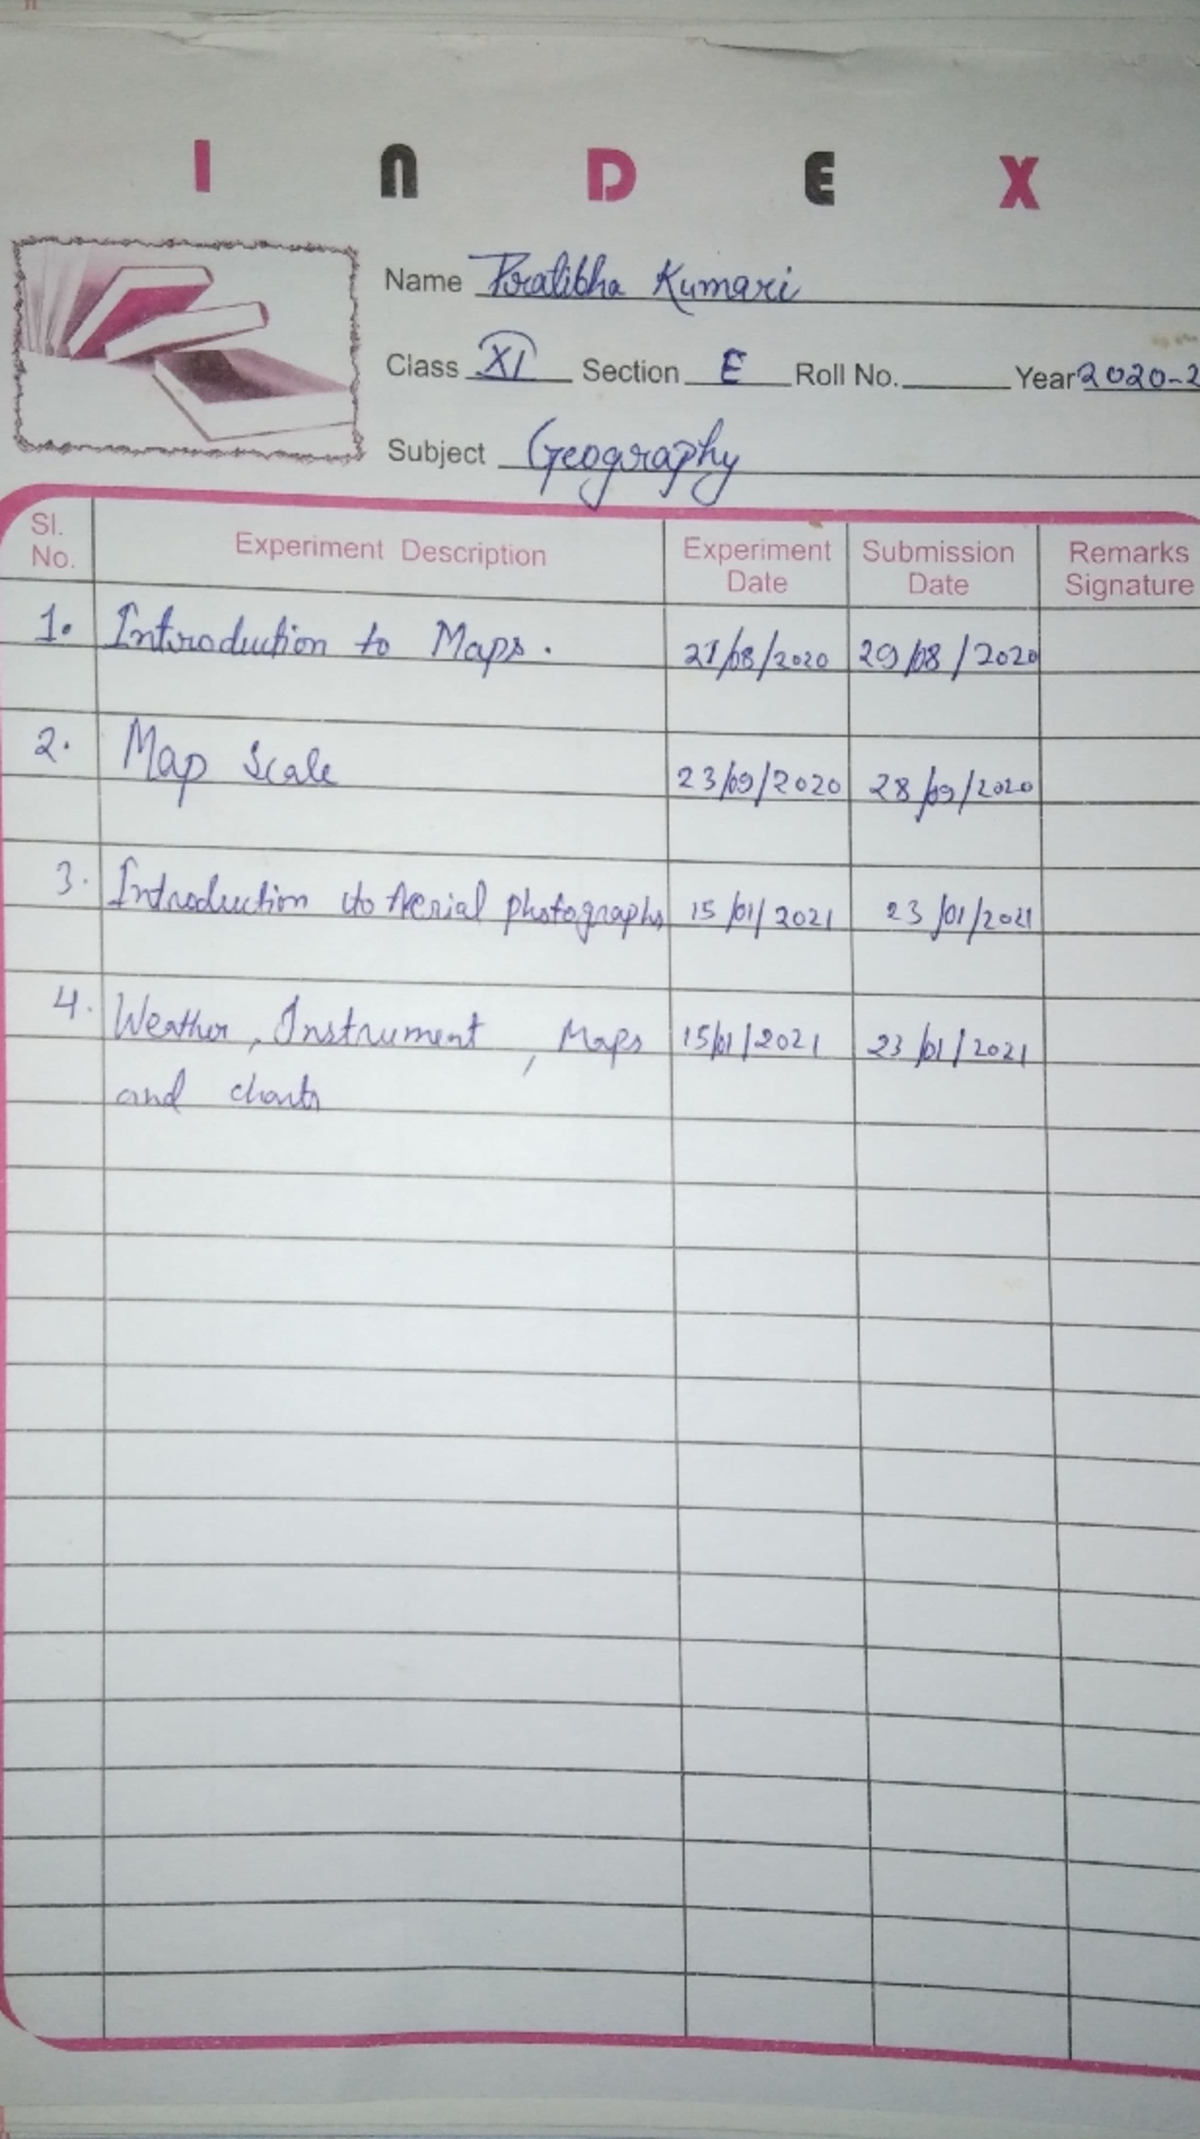 INDEX
Name Pratibha Kumari
Class XI Section E Roll No. Year 2020-2
Subject Geography
Sl. No. Experiment Description Experiment Date Submission Date Remarks Signature
1. Introduction to Maps. 21/08/2020 29/08/2020
2. Map Scale 23/09/2020 28/09/2020
3. Introduction to Aerial photographs 15/01/2021 23/01/2021
4. Weather, Instrument, Maps 15/01/2021 23/01/2021
and charts